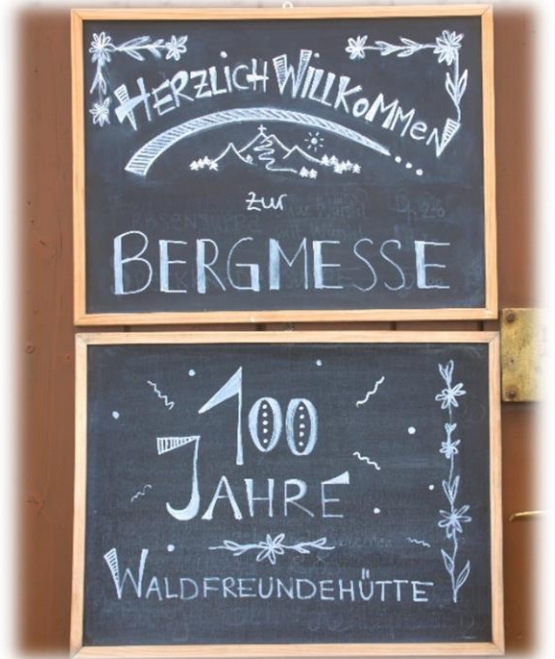 HERZLICH WILLKOMMEN
zur
BERGMESSE
100
JAHRE
WALDFREUNDEHÜTTE